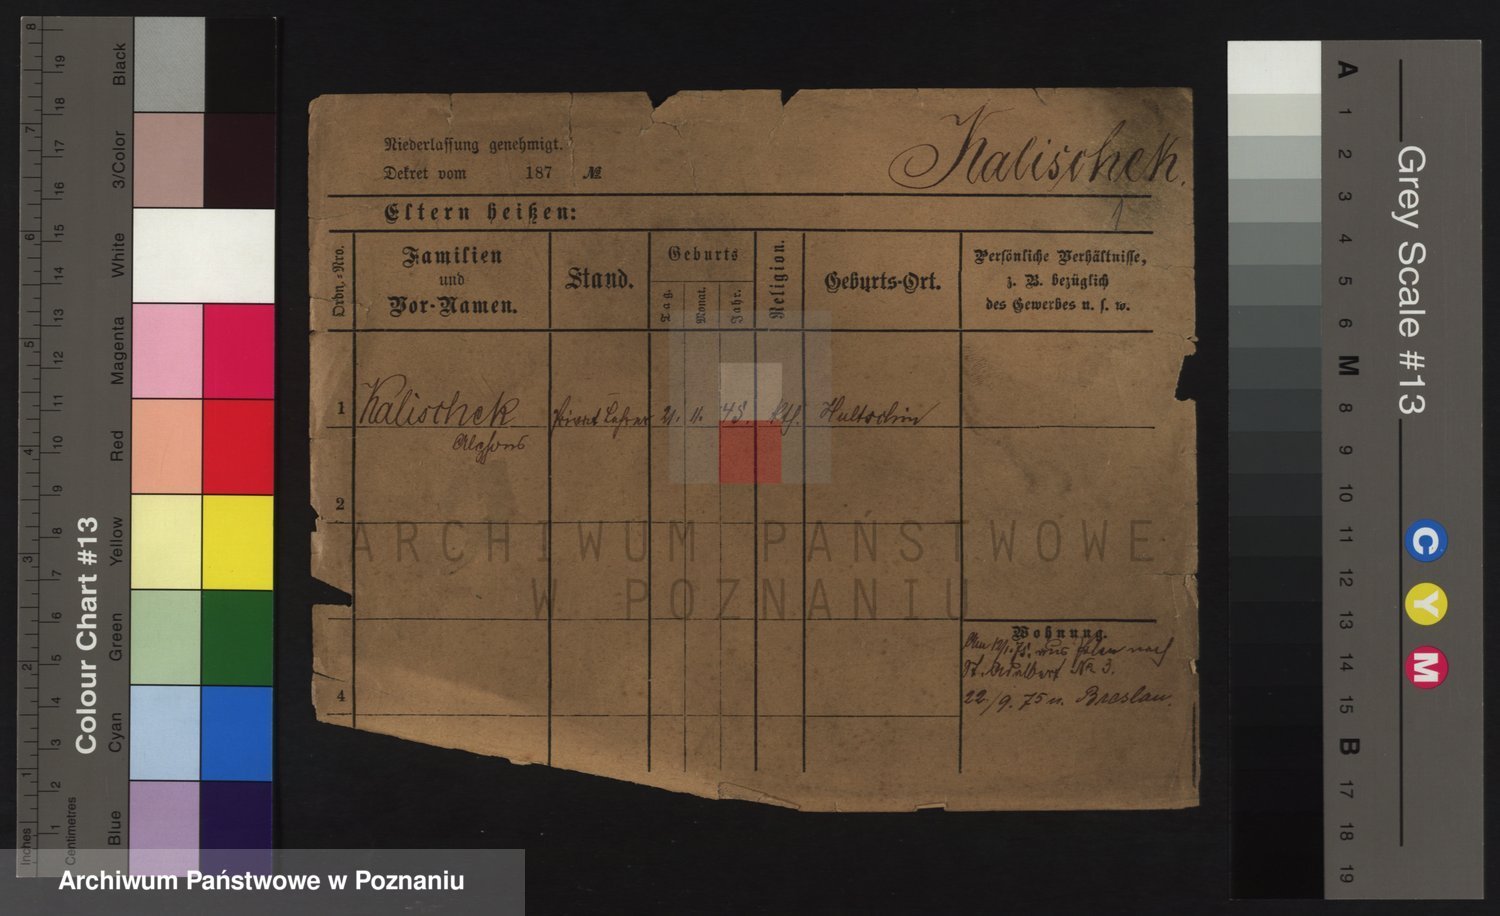 Niederlassung genehmigt.
Dekret vom 187 №
Kalischek.
1
Eltern heißen:
Ordn.-Nro.
Familien
und
Vor-Namen.
Stand.
Geburts
Tag.
Monat.
Jahr.
Religion.
Geburts-Ort.
Persönliche Verhältnisse,
z. B. bezüglich
des Gewerbes u. s. w.
1 Kalischek Privat Lehrer 21. 11. 48. kth. Hultschin
Alfons
2
4
Wohnung.
nach
St. Adalbert № 3.
22/9. 75 n. Breslau.
ARCHIWUM PAŃSTWOWE
W POZNANIU
Archiwum Państwowe w Poznaniu
Colour Chart #13
Black
3/Color
White
Magenta
Red
Yellow
Green
Cyan
Blue
Inches
Centimetres
8
7
6
5
4
3
2
1
19
18
17
16
15
14
13
12
11
10
9
8
7
6
5
4
3
2
1
Grey Scale #13
A
1
2
3
4
5
6
M
8
9
10
11
12
13
14
15
B
17
18
19
C
Y
M